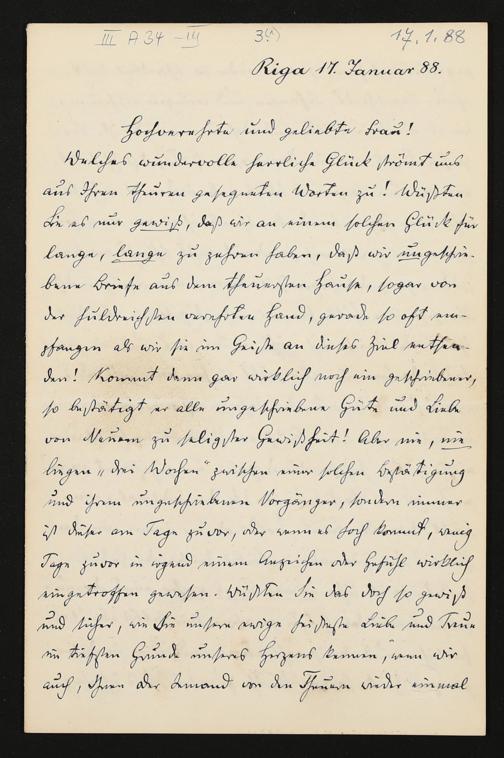 III A 34 – III 3(4) 17.1.88
Riga 17. Januar 88.
Hochverehrte und geliebte Frau!
Welches wundervolle herrliche Glück strömt uns
aus Ihren theuren gesegneten Worten zu! Wüßten
Sie es nur gewiß, daß wir an einem solchen Glück für
lange, lange zu zehren haben, daß wir ungeschrie-
bene Briefe aus dem theuersten Hause, sogar von
der huldreichsten verehrten Hand, gerade so oft em-
pfangen als wir sie im Geiste an dieses Ziel entsen-
den! Kommt dann gar wirklich noch ein geschriebener,
so bestätigt er alle ungeschriebene Güte und Liebe
von Neuem zu seligster Gewißheit! Aber nie, nie
liegen „drei Wochen" zwischen einer solchen Bestätigung
und ihrem ungeschriebenen Vorgänger, sondern immer
ist dieser am Tage zuvor, oder wenn es hoch kommt, wenig
Tage zuvor in irgend einem Anzeichen oder Gefühl wirklich
eingetroffen gewesen. Wüßten Sie das doch so gewiß
und sicher, wie Sie unsere ewige heißeste Liebe und Treue
im tiefsten Grunde unseres Herzens kennen, wenn wir
auch, Ihnen oder Jemand von den Theuern wieder einmal